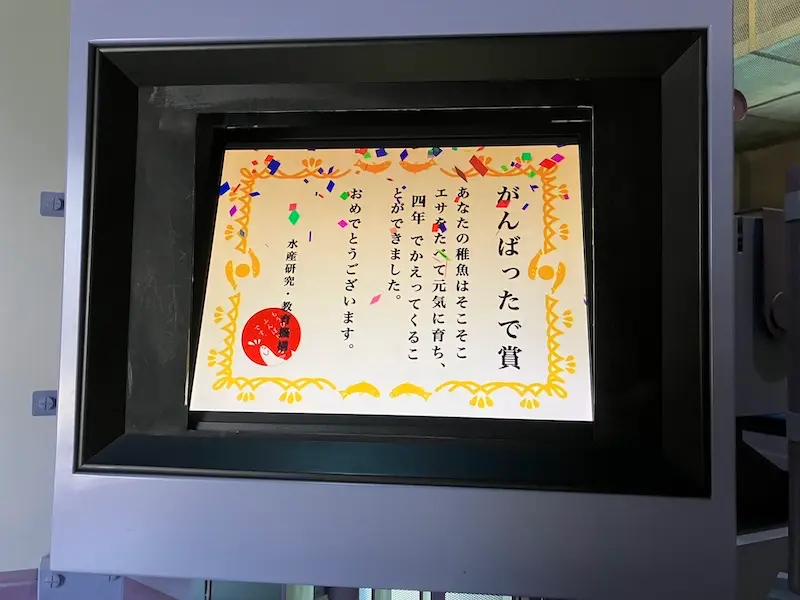 がんばったで賞
あなたの稚魚はそこそこ
エサをたべて元気に育ち、
四年 でかえってくるこ
とができました。
おめでとうございます。
水産研究・教育機構